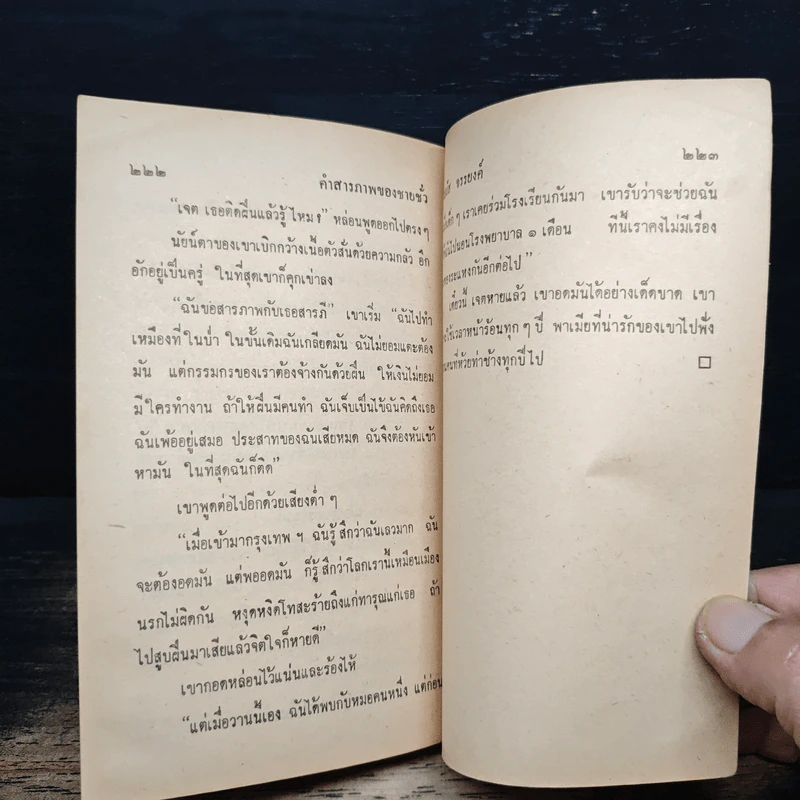 ๒๒๒
คำสารภาพของชายชั่ว
“เจต เธอติดฝิ่นแล้วรู้ไหม?” หล่อนพูดออกไปตรงๆ
นัยน์ตาของเขาเบิกกว้างเนื้อตัวสั่นด้วยความกลัว อึก
อักอยู่เป็นครู่ ในที่สุดเขาก็คุกเข่าลง
“ฉันขอสารภาพกับเธอสารภี” เขาเริ่ม “ฉันไปทำ
เหมืองที่ในป่า ในขั้นเดิมฉันเกลียดมัน ฉันไม่ยอมแตะต้อง
มัน แต่กรรมกรของเราต้องจ้างกันด้วยฝิ่น ให้เงินไม่ยอม
มีใครทำงาน ถ้าให้ฝิ่นมีคนทำ ฉันเจ็บเป็นไข้ฉันคิดถึงเธอ
ฉันเพ้ออยู่เสมอ ประสาทของฉันเสียหมด ฉันจึงต้องหันเข้า
หามัน ในที่สุดฉันก็ติด”
เขาพูดต่อไปอีกด้วยเสียงต่ำ ๆ
“เมื่อเข้ามากรุงเทพ ฯ ฉันรู้สึกว่าฉันเลวมาก ฉัน
จะต้องอดมัน แต่พออดมัน ก็รู้สึกว่าโลกเรานี้เหมือนเมือง
นรกไม่ผิดกัน หงุดหงิดโทสะร้ายถึงแก่ทารุณแก่เธอ ถ้า
ไปสูบฝิ่นมาเสียแล้วจิตใจก็หายดี”
เขากอดหล่อนไว้แน่นและร้องไห้
“แต่เมื่อวานนี้เอง ฉันได้พบกับหมอคนหนึ่ง แต่ก่อน
จรรยงค์
๒๒๓
ๆ เราเคยร่วมโรงเรียนกันมา เขารับว่าจะช่วยฉัน
ไปนอนโรงพยาบาล ๑ เดือน ทีนี้เราคงไม่มีเรื่อง
ระแหงกันอีกต่อไป”
เดี๋ยวนี้ เจตหายแล้ว เขาอดมันได้อย่างเด็ดขาด เขา
ใช้เวลาหน้าร้อนทุก ๆ ปี พาเมียที่น่ารักของเขาไปฟัง
คนที่หัวยท่าช้างทุกปีไป